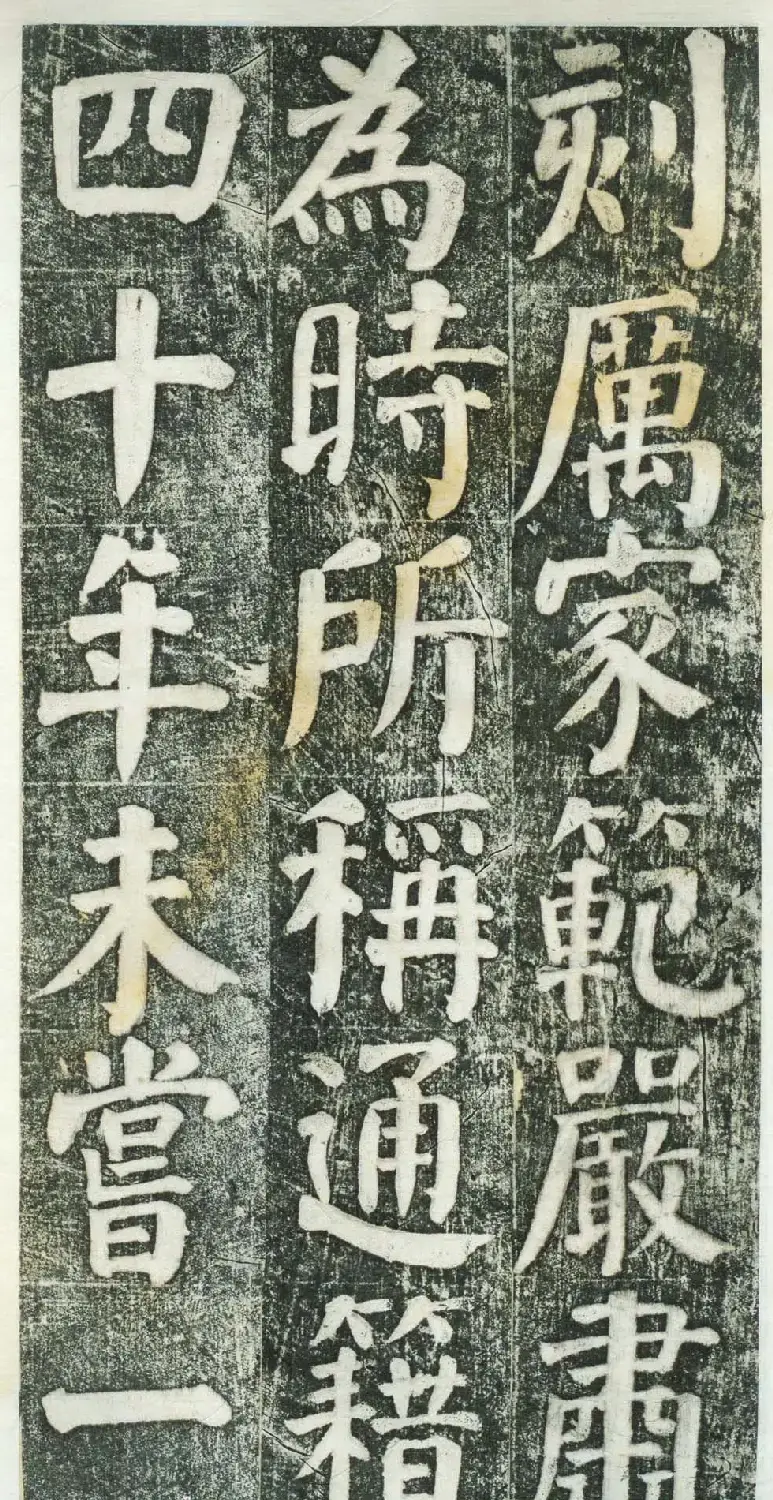 刻厲家範嚴肅
為時所稱通籍
四十年未嘗一